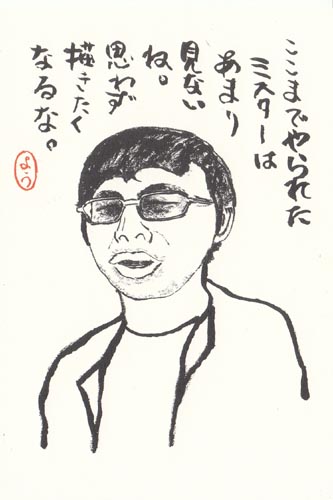 ここまでやられた
ミスターは
あまり
見ない
ね。
思わず
描きたく
なるな。
よう